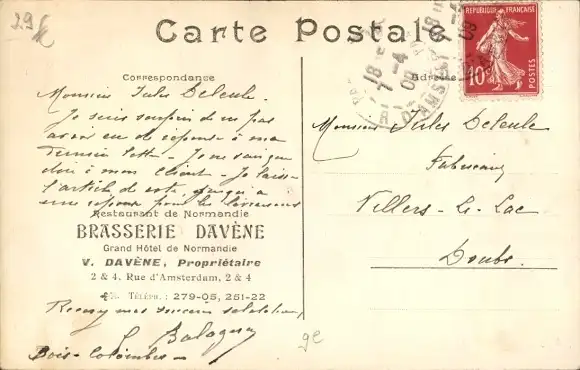 29 f
Carte Postale
Correspondance
Adresse
RÉPUBLIQUE FRANÇAISE
10c
POSTES
18
7-4
09
Monsieur Jules Deleule
Je suis surpris de ne pas
avoir eu de réponse à ma
dernière lettre - Je ne sais que
dire à mon Client - Je laisse
l'article de côté, jusqu'à
une réponse pour les livraisons
Restaurant de Normandie
BRASSERIE DAVÈNE
Grand Hôtel de Normandie
V. DAVÈNE, Propriétaire
2 & 4, Rue d'Amsterdam, 2 & 4
TÉLÉPH. : 279-05, 251-22
Recevez mes sincères salutations
Bois-Colombes
ge
Monsieur Jules Deleule
Fabricant
Villers-le-Lac
Doubs.